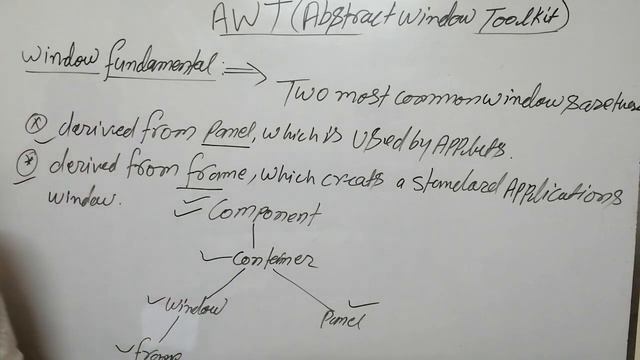 AWT (Abstract Window Toolkit)
Window fundamental ⇒
Two most common windows are those
derived from Panel, which is used by Applets.
derived from frame, which creats a standard Applications
window.
Component
Container
window
Panel
frame